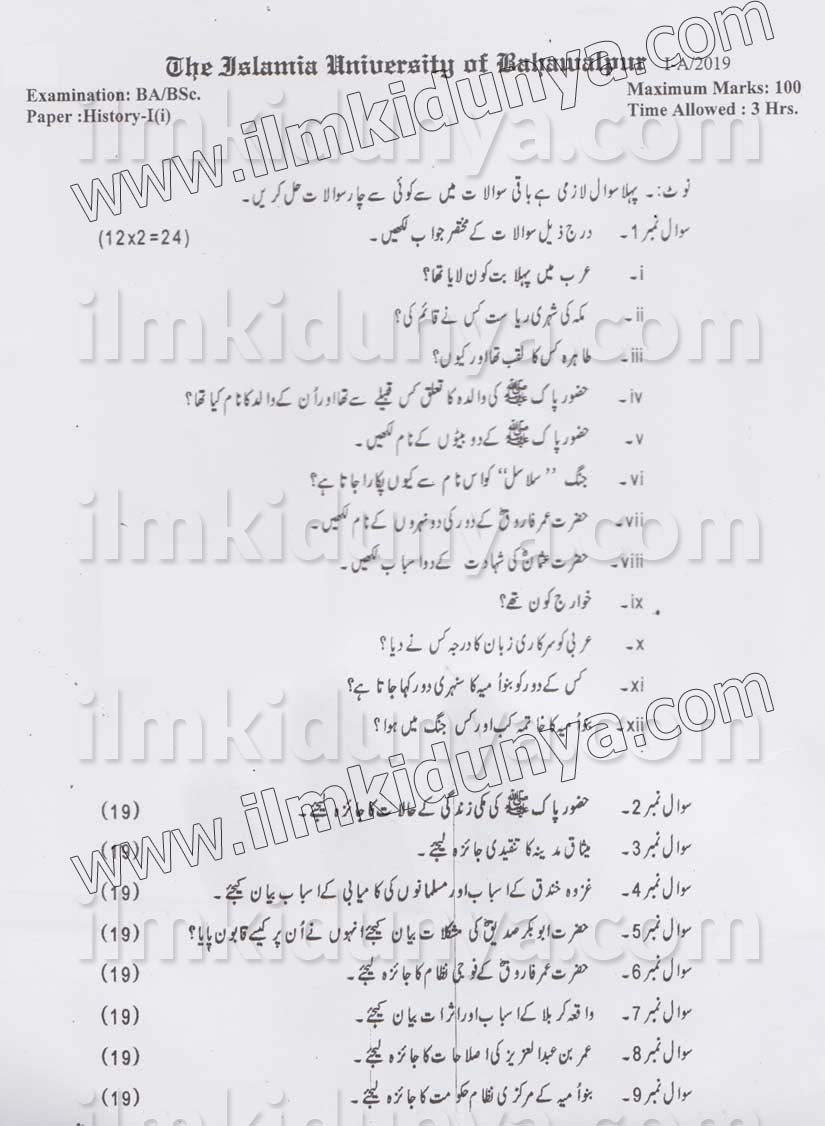 The Islamia University of Bahawalpur I-A/2019
Examination: BA/BSc. Maximum Marks: 100
Paper :History-I(i) Time Allowed : 3 Hrs.
www.ilmkidunya.com
نوٹ:۔ پہلا سوال لازمی ہے باقی سوالات میں سے کوئی سے چار سوالات حل کریں۔
سوال نمبر 1۔ درج ذیل سوالات کے مختصر جواب لکھیں۔ (12x2=24)
i۔ عرب میں پہلا بت کون لایا تھا؟
ii۔ مکہ کی شہری ریاست کس نے قائم کی؟
iii۔ طاہرہ کس کا لقب تھا اور کیوں؟
iv۔ حضور پاک ﷺ کی والدہ کا تعلق کس قبیلے سے تھا اور اُن کے والد کا نام کیا تھا؟
v۔ حضور پاک ﷺ کے دو بیٹوں کے نام لکھیں۔
vi۔ جنگ ”سلاسل“ کو اس نام سے کیوں پکارا جاتا ہے؟
vii۔ حضرت عمر فاروقؓ کے دور کی دو نہروں کے نام لکھیں۔
viii۔ حضرت عثمانؓ کی شہادت کے دو اسباب لکھیں۔
ix۔ خوارج کون تھے؟
x۔ عربی کو سرکاری زبان کا درجہ کس نے دیا؟
xi۔ کس کے دور کو بنو اُمیہ کا سنہری دور کہا جاتا ہے؟
xii۔ بنو اُمیہ کا خاتمہ کب اور کس جنگ میں ہوا؟
سوال نمبر 2۔ حضور پاک ﷺ کی مکی زندگی کے حالات کا جائزہ لیجئے۔ (19)
سوال نمبر 3۔ میثاق مدینہ کا تنقیدی جائزہ لیجئے۔ (19)
سوال نمبر 4۔ غزوہ خندق کے اسباب اور مسلمانوں کی کامیابی کے اسباب بیان کیجئے۔ (19)
سوال نمبر 5۔ حضرت ابوبکر صدیقؓ کی مشکلات بیان کیجئے انہوں نے اُن پر کیسے قابو پایا؟ (19)
سوال نمبر 6۔ حضرت عمر فاروقؓ کے فوجی نظام کا جائزہ لیجئے۔ (19)
سوال نمبر 7۔ واقعہ کربلا کے اسباب اور اثرات بیان کیجئے۔ (19)
سوال نمبر 8۔ عمر بن عبدالعزیز کی اصلاحات کا جائزہ لیجئے۔ (19)
سوال نمبر 9۔ بنو اُمیہ کے مرکزی نظام حکومت کا جائزہ لیجئے۔ (19)
www.ilmkidunya.com
ilmkidunya.com
ilmkidunya.com
ilmkidunya.com
ilmkidunya.com
ilmkidunya.com
ilmkidunya.com